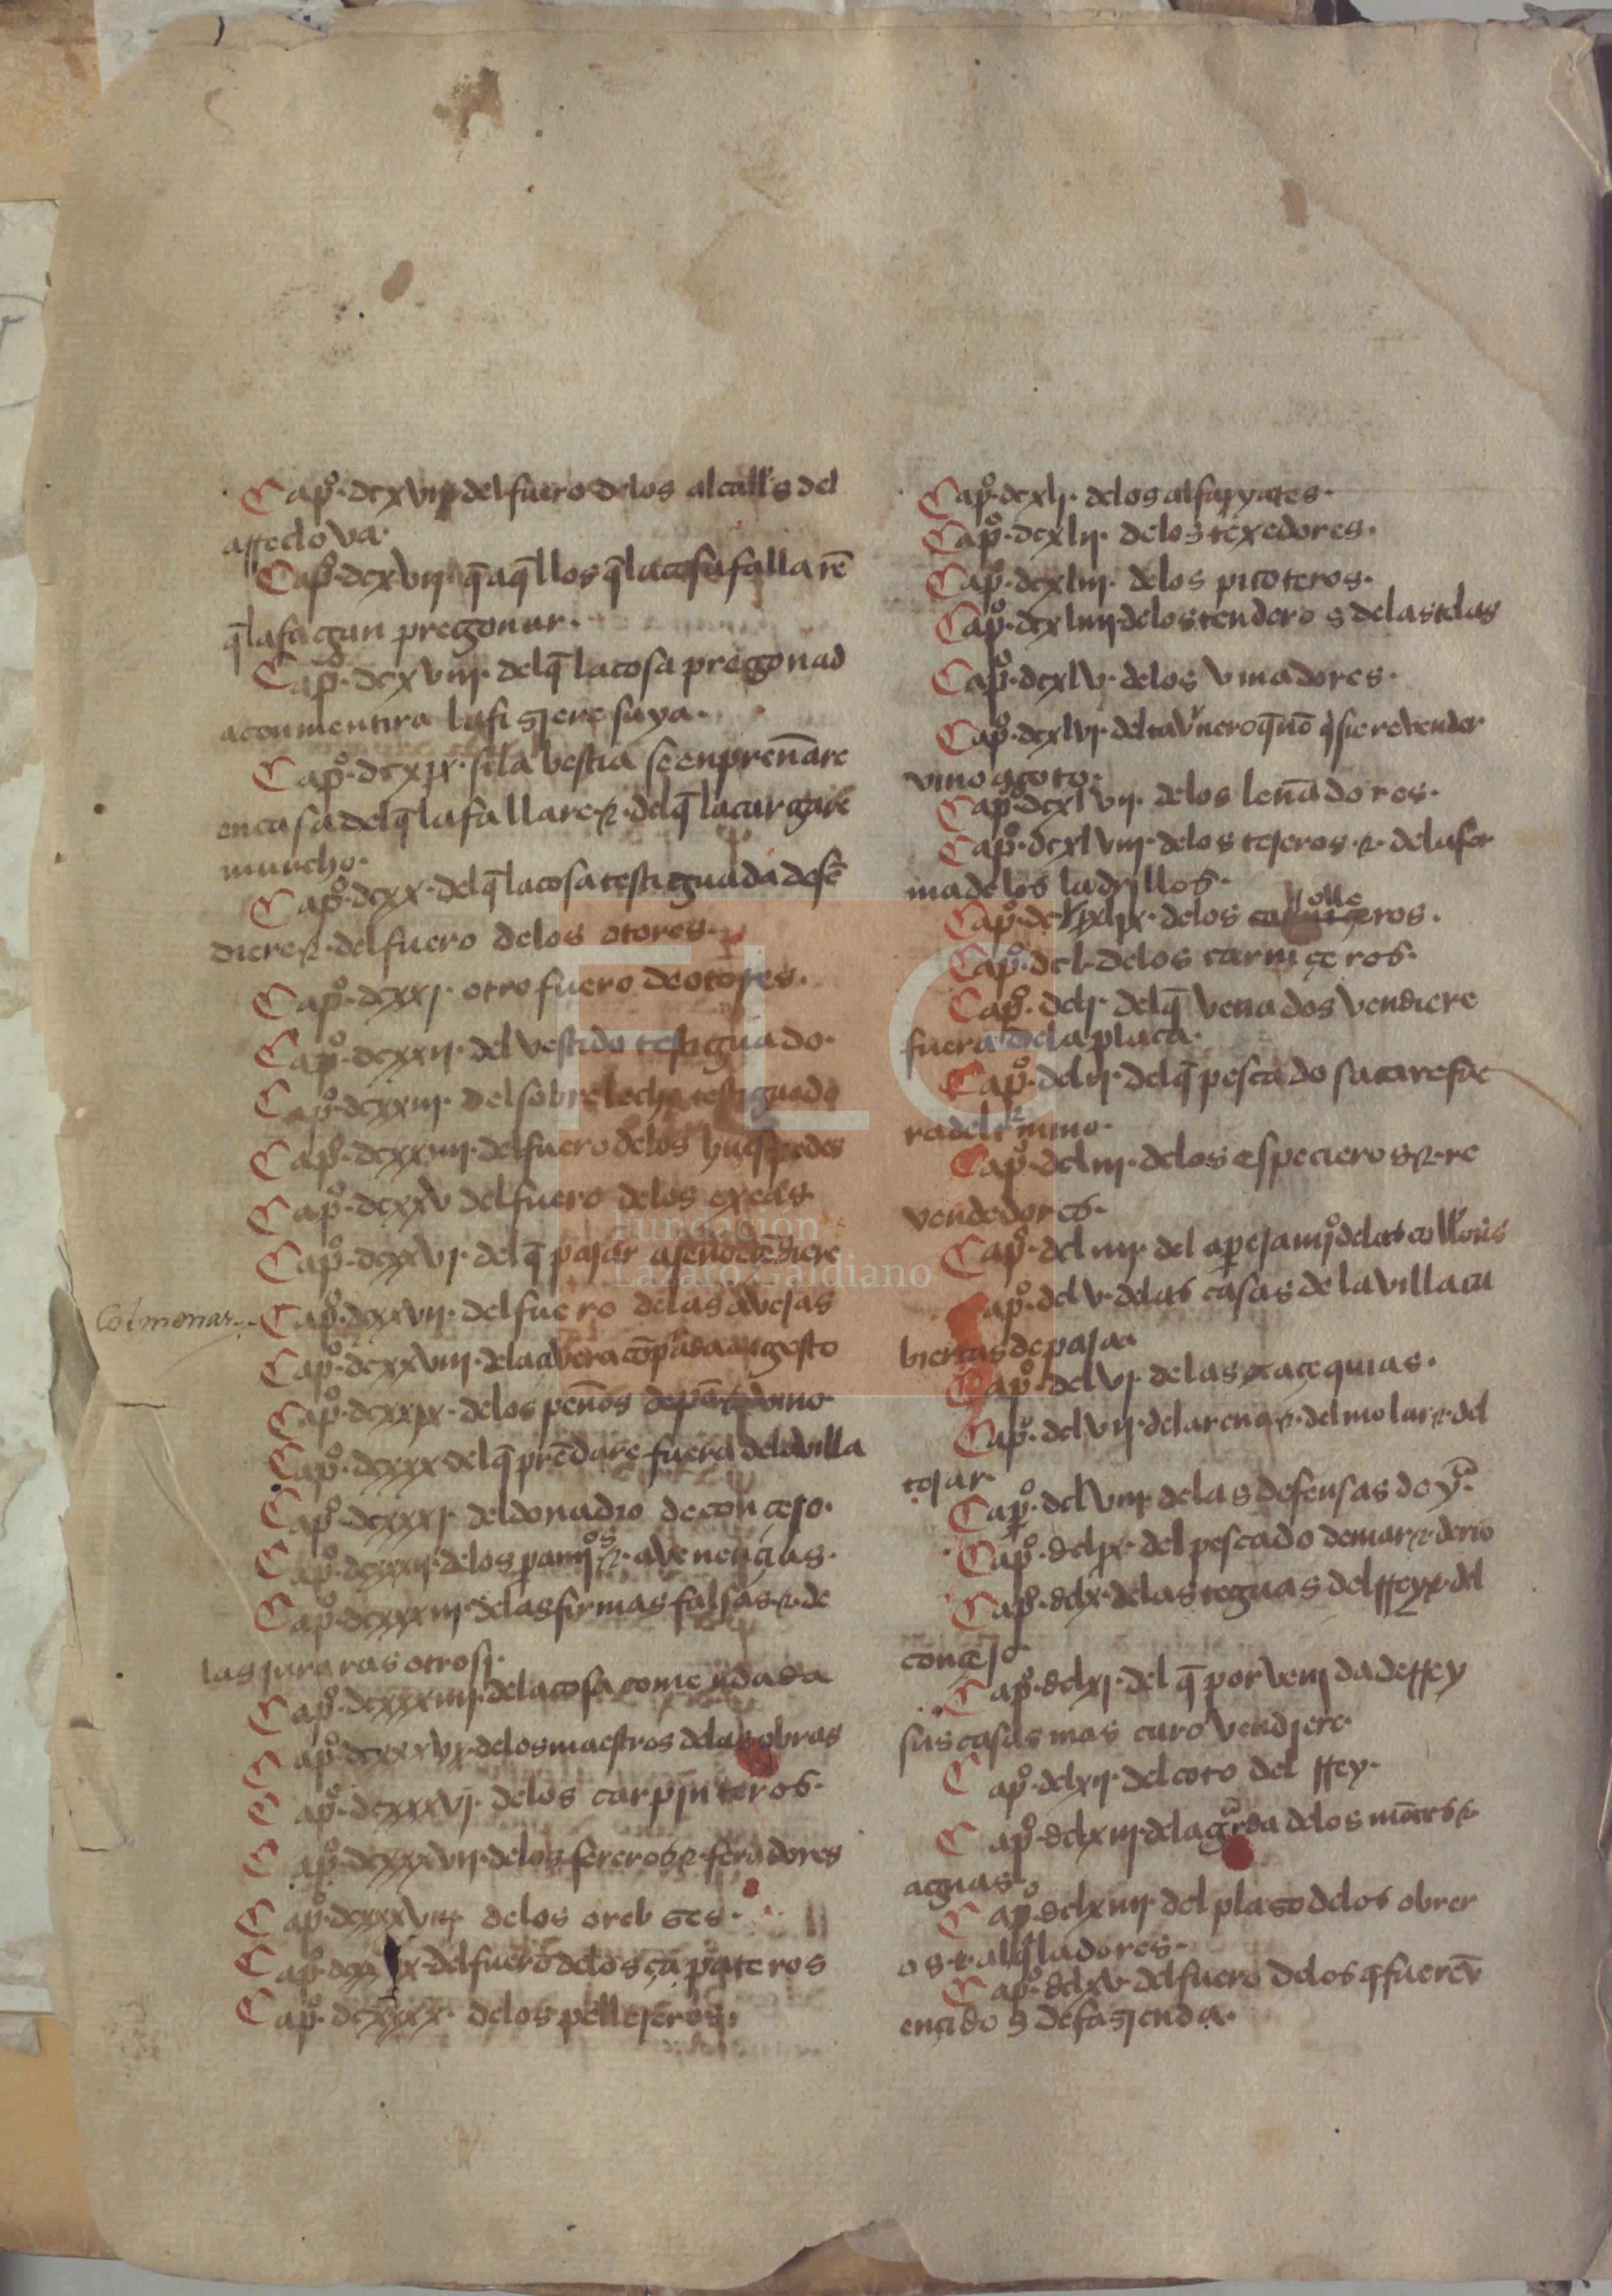 Capº. dcxvj. del fuero delos alcalłs del
affedova.
Capº. dcxvij. q̄ aq̄llos q̄ la cosa fallarē
q̄ la fagan pregonar.
Capº. dcxviij. del q̄ la cosa pregonad
a con mentira la fiziere suya.
Capº. dcxix. si la bestia se enpren̄are
en casa del q̄ la fallare. ⁊. del q̄ la cargare
muncho.
Capº. dcxx. del q̄ la cosa testiguada defē
diere ⁊. del fuero delos otores.
Capº. dcxxj. otro fuero de otores.
Capº. dcxxij. del vestido testiguado.
Capº. dcxxiij. del sobrelecho testiguado
Capº. dcxxiiij. del fuero delos huespedes
Capº. dcxxv del fuero delos exeas.
Capº. dcxxvj. del q̄ pajar ageno ençendiere
Colmenar
Capº. dcxxvij. del fuero delas avejas
Capº. dcxxviij. dela çivera cōpada al agosto
Capº. dcxxix. delos pen̄os de pā ⁊ vino.
Capº. dcxxx del q̄ prēdare fuera dela villa
Capº. dcxxxj. del donadio de conçejo.
Capº. dcxxxij. delos pamjºs ⁊. avenençias.
Capº. dcxxxiij. delas firmas falsas. ⁊. de
las juras otrosj.
Capº. dcxxxiiij. dela cosa comendada
Capº. dcxxxv. delos maestros delas obras
Capº. dcxxxvj. delos carpinteros.
Capº. dcxxxvij. delos fereros. ⁊. feradores
Capº. dcxxxviij. delos orebzes.
Capº. dcxxxix. del fuero delos çapateros
Capº. dcxxxx. delos pellejeros.
Capº. dcxlj. delos alfajyates.
Capº. dcxlij. delos texedores.
Capº. dcxliij. delos picoteros.
Capº. dcxliiij. delos tenderos delas telas
Capº. dcxlv. delos vinadores.
Capº. dcxlvj. del tav'nero q̄ nō q̇siere vender
vino a coto.
Capº. dcxlvij. delos len̄adores.
Capº. dcxlviij. delos tejeros. ⁊. dela for
ma delos ladrillos.
Capº. dcxlix. delos olleros.
Capº. dcl. delos carniçeros.
Capº. dclj. del q̄ venados vendiere
fuera dela plaça.
Capº. dclij. del q̄ pescado sacare fue
ra del t'mino.
Capº. dcliij. delos espeçieros ⁊. re
vendedores.
Capº. dcliiij. del aparejamjº delas
Capº. dclv. delas casas dela villa cu
biertas de paja.
Capº. dclvj. delas açequias.
Capº. dclvij. del arena. ⁊. del molar ⁊. del
tojar.
Capº. dclviij. delas defensas do yᵃ.
Capº. dclix. del pescado de mar. ⁊. de rio
Capº. dclx. delas teguas del rrey. ⁊. del
conçejo.
Capº. dclxj. del q̄ por venjda de rrey
sus casas mas caro vendiere.
Capº. dclxij. del coto del rrey.
Capº. dclxiij. dela gᵃrda delos mōtes ⁊
aguas.
Capº. dclxiiij. del plazo delos obrer
os. ⁊. alq̇ladores.
Capº. dclxv. del fuero delos q̄ fuerē v
ençidos de fazienda.
Fundación
Lázaro Galdiano
FLG